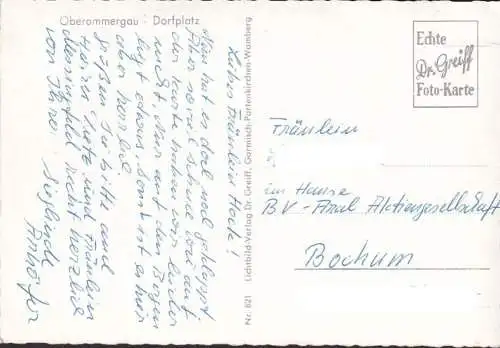 Oberammergau - Dorfplatz
Liebes Fräulein Hock!
Nun hat es doch mal geklappt
Aber so viel Schnee wie auf
der Karte haben wir leider
nicht. Nur auf den Bergen
liegt etwas. Sonst ist es hier
aber herrlich
Grüßen Sie bitte
Herrn und Fräulein
recht herzlich
von Ihrer Sieglinde
Nr. 821 Lichtbild-Verlag Dr. Greiff, Garmisch-Partenkirchen-Wamberg
Echte
Dr. Greiff
Foto-Karte
Fräulein
im Hause
BV-Aral Aktiengesellschaft
Bochum